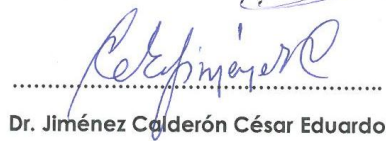 Dr. Jiménez Calderón César Eduardo